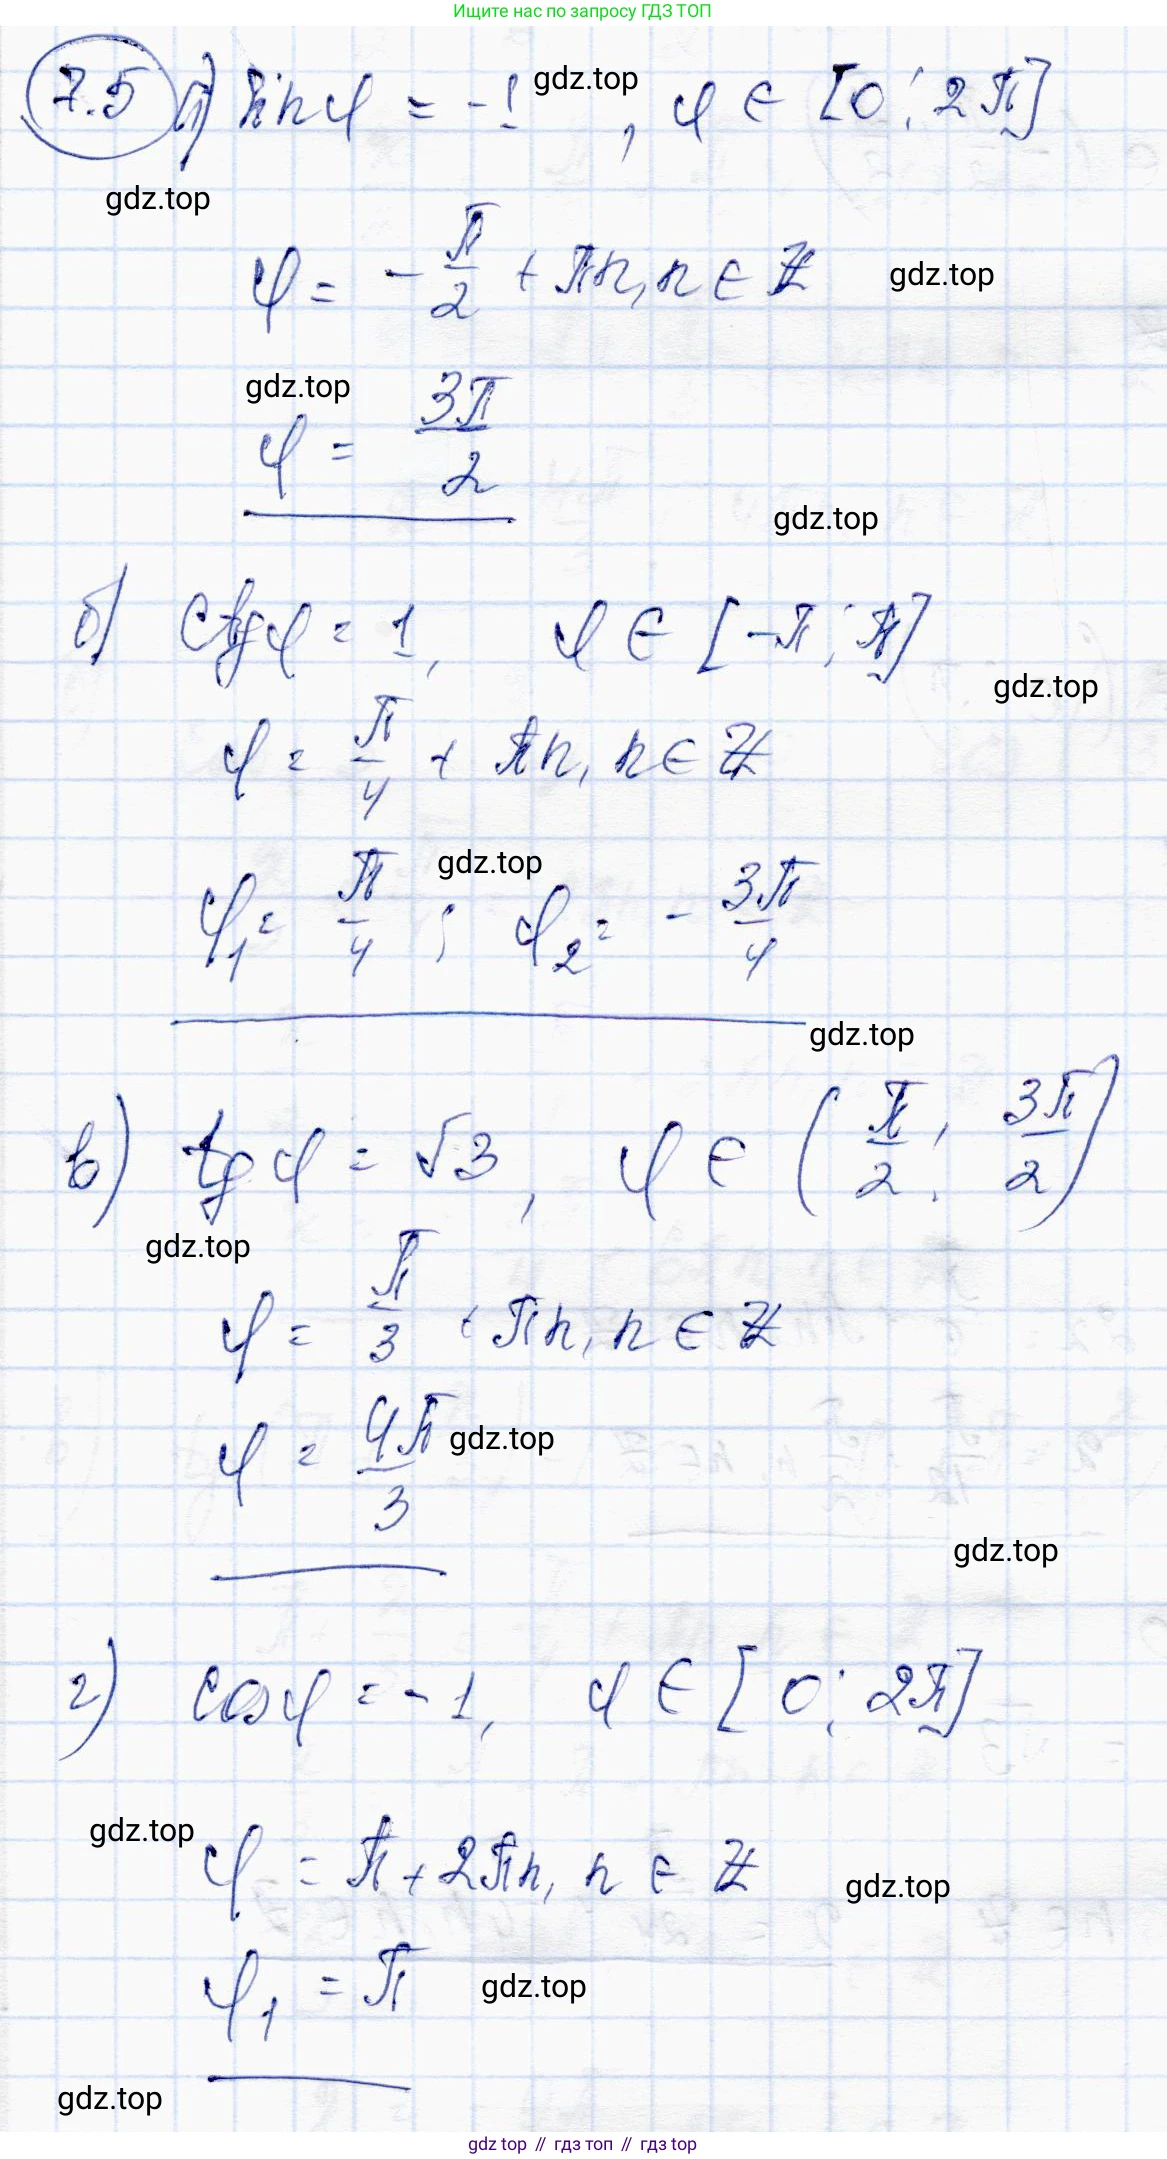 Ищите нас по запросу ГДЗ ТОП
7.5 а) sin φ = -1, φ ∈ [0; 2π]
gdz.top
gdz.top
φ = -π/2 + πn, n ∈ Z
gdz.top
gdz.top
φ = 3π/2
gdz.top
б) ctg φ = 1, φ ∈ [-π; π]
gdz.top
φ = π/4 + πn, n ∈ Z
gdz.top
φ₁ = π/4; φ₂ = -3π/4
gdz.top
в) tg φ = √3, φ ∈ (π/2; 3π/2)
gdz.top
φ = π/3 + πn, n ∈ Z
φ = 4π/3
gdz.top
gdz.top
г) cos φ = -1, φ ∈ [0; 2π]
gdz.top
φ = π + 2πn, n ∈ Z
gdz.top
φ₁ = π
gdz.top
gdz.top
gdz top // гдз топ // гдз top